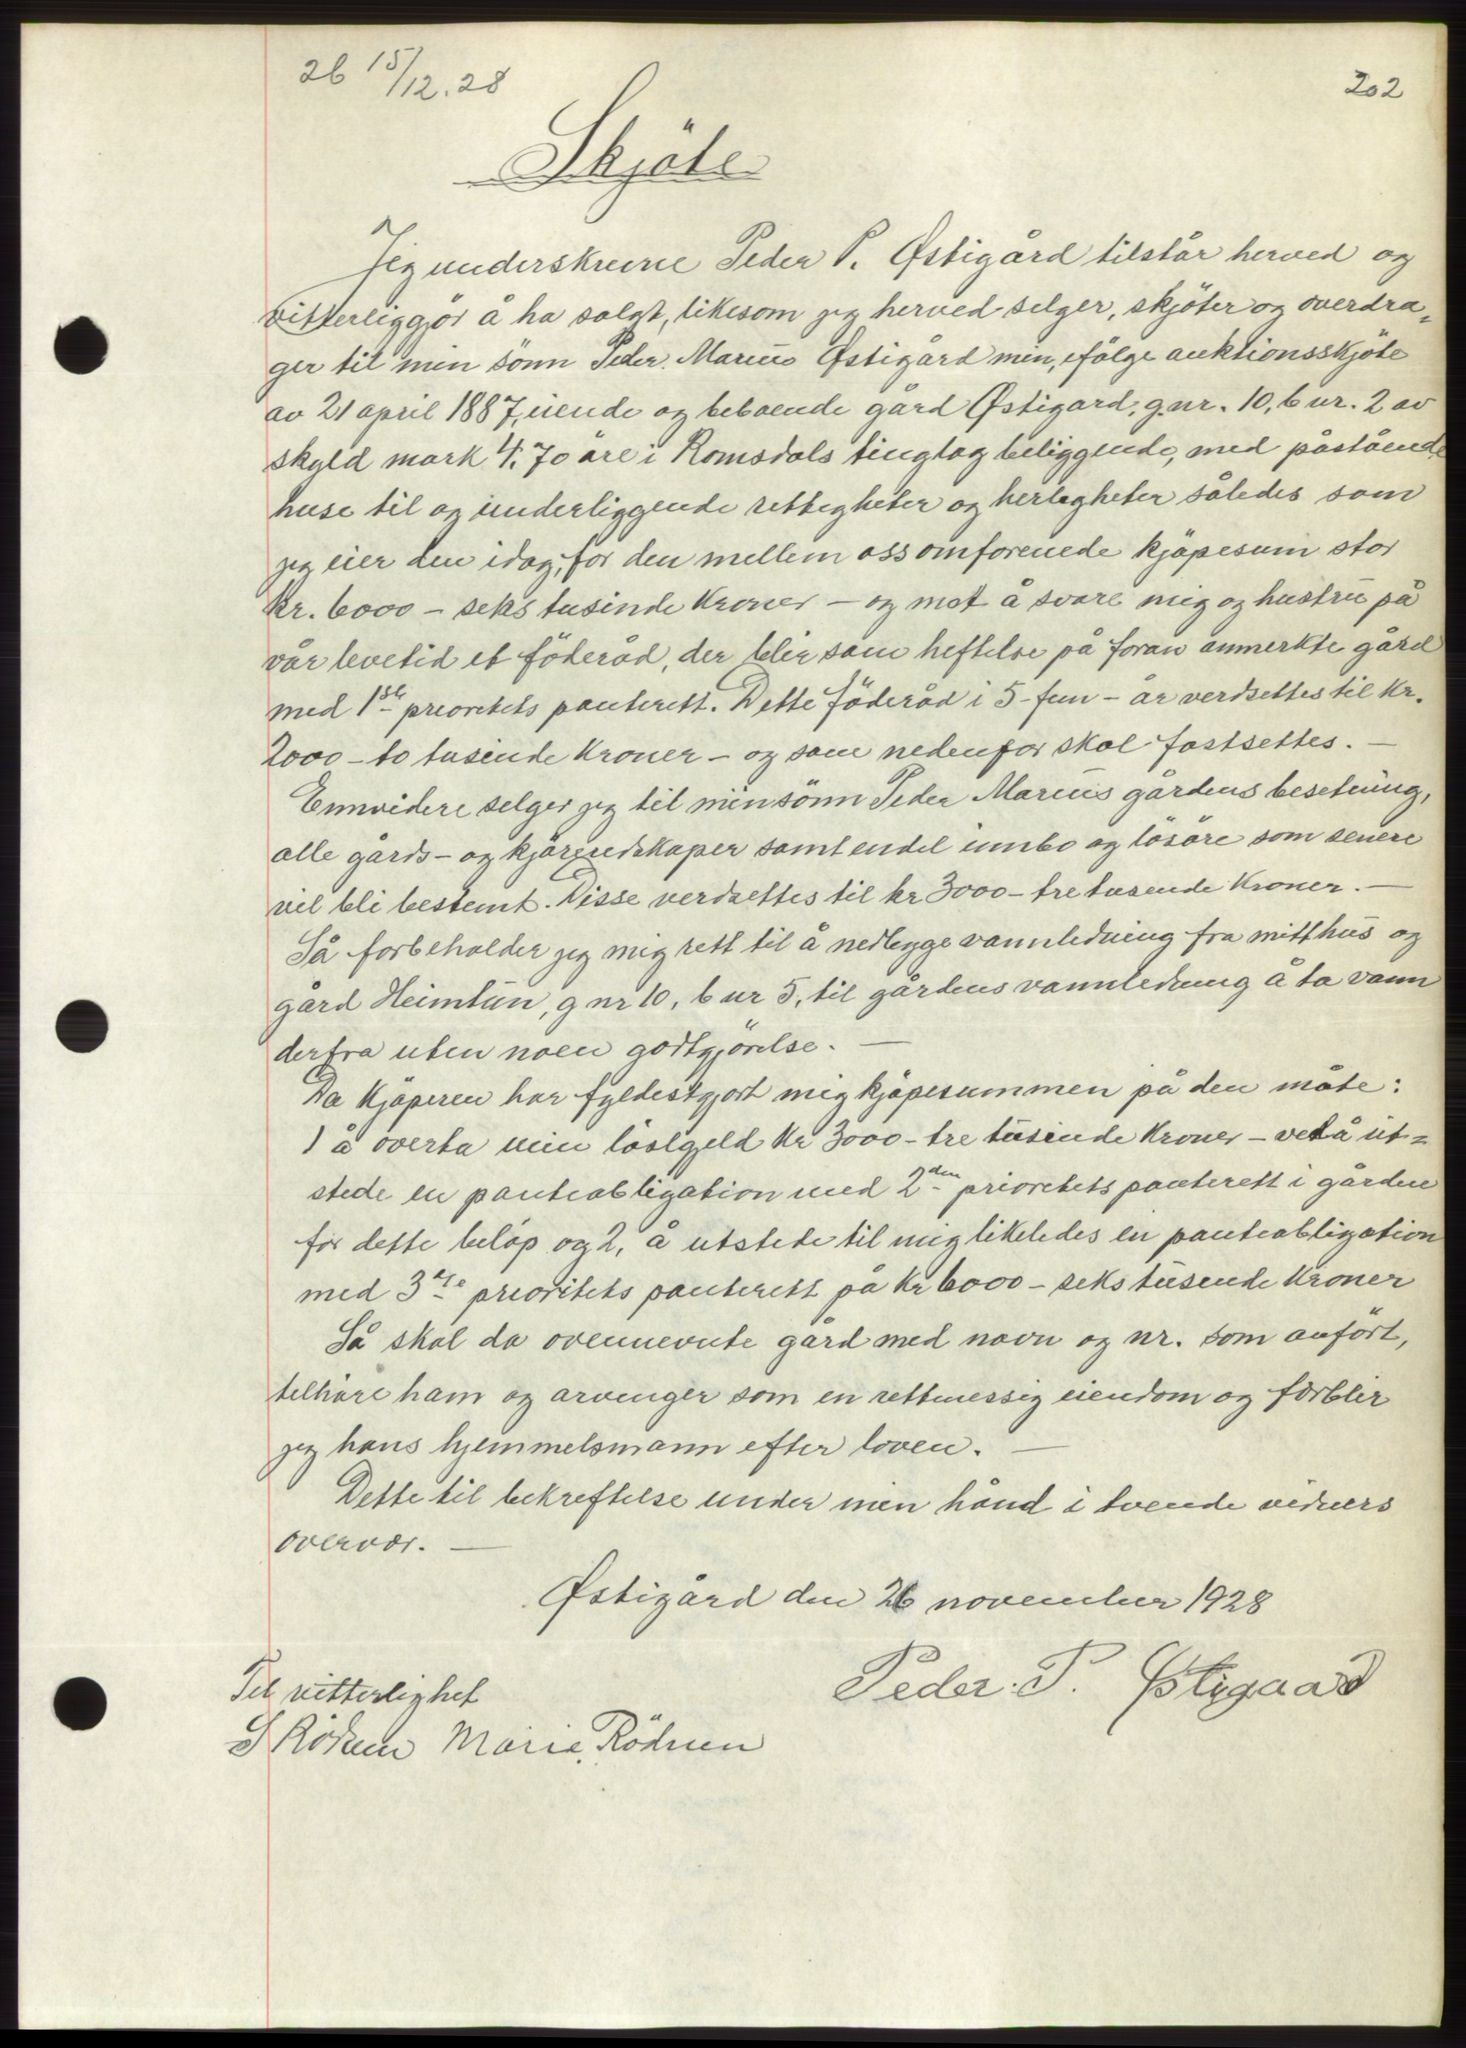 26 15/12.28
202
Skjöte
Jeg underskrevne Peder P. Østigård tilstår herved og
vitterliggjör å ha solgt, likesom jeg herved selger, skjöter og overdra-
ger til min sönn Peder Marius Østigård min, ifölge auktionsskjöte
av 21 april 1887, eiende og beboende gård Østigard, g.nr. 10, b nr. 2 av
skyld mark 4.70 öre i Romsdals tinglag beliggende, med påstående
huse til og underliggende rettigheter og herligheter således som
jeg eier den idag, for den mellem oss omforenede kjöpesum stor
kr. 6000 - seks tusinde kroner - og mot å svare mig og hustru på
vår levetid et föderåd, der blir som heftelse på foran anmerkte gård
med 1ste prioritets panterett. Dette föderåd i 5 - fem - år verdsettes til kr.
2000 - to tusinde kroner - og som nedenfor skal fastsettes. -
Ennvidere selger jeg til min sönn Peder Marius gårdens besetning,
alle gårds- og kjöreredskaper samt endel innbo og lösöre som senere
vil bli bestemt. Disse verdsettes til kr 3000 - tre tusende kroner. -
Så forbeholder jeg mig rett til å nedlegge vannledning fra mitt hus og
gård Heimtun, g nr 10, b nr 5, til gårdens vannledning å ta vann
derfra uten noen godtgjörelse. -
Da kjöperen har fyldestgjort mig kjöpesummen på den måte:
1 å overta min löslgjeld kr 3000 - tre tusinde kroner - ved å ut-
stede en panteobligation med 2den prioritets panterett i gården
for dette belöp og 2, å utstede til mig likeledes en panteobligation
med 3dje prioritets panterett på kr 6000 - seks tusende kroner
Så skal da ovennevnte gård med navn og nr. som anfört,
tilhöre ham og arvinger som en rettmessig eiendom og forblir
jeg hans hjemmelsmann efter loven. -
Dette til bekreftelse under min hånd i tvende vidners
overvær. -
Østigård den 26 november 1928
Peder. P. Østigaard
Til vitterlighet
S Rödven Marie Rödven